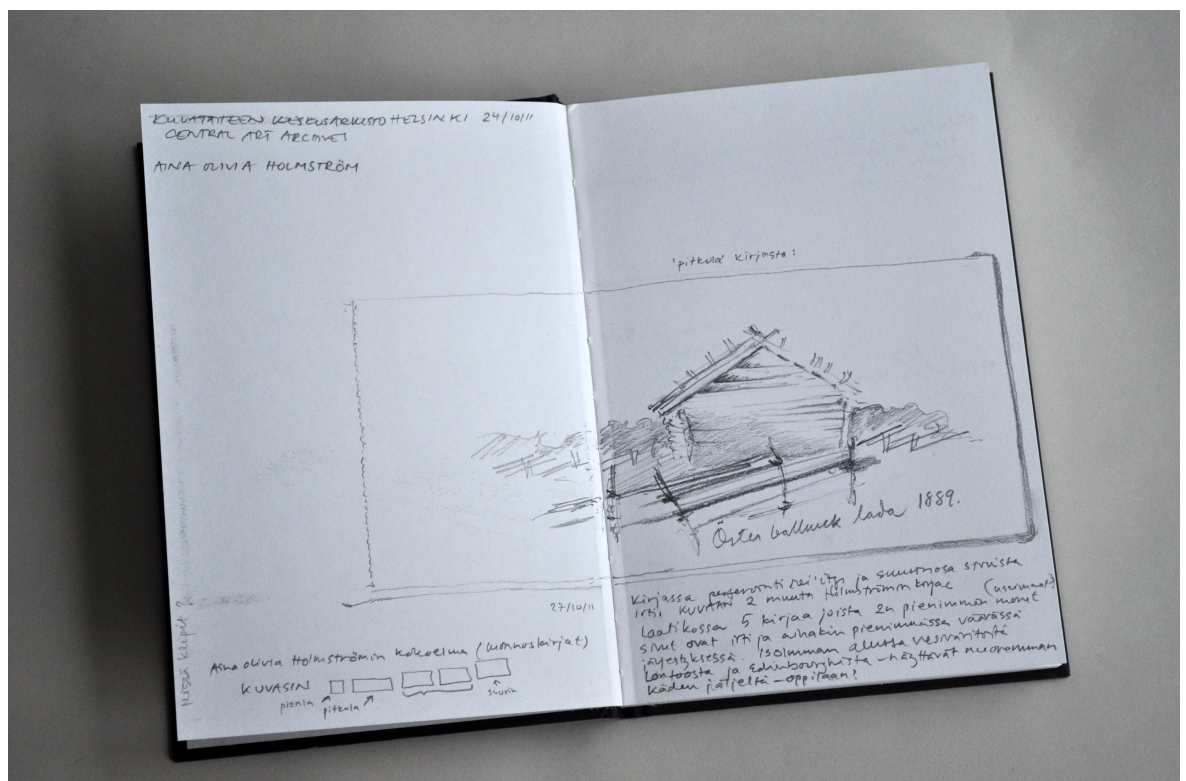 KUVATAITEEN KESKUSARKISTO HELSINKI 24/10/11
CENTRAL ART ARCHIVES
AINA OLIVIA HOLMSTRÖM
27/10/11
Aina Olivia Holmströmin kokoelma (luonnoskirjat)
KUVASIN
pienin
pitkula
suurin
Missä klipit?
'pitkula' kirjasta:
Öster lada 1889.
Kirjassa perforointi rei'itys ja suurin osa sivuista
irti. KUVAAN 2 muuta Holmströmin kirjaa (useimmat)
Laatikossa 5 kirjaa joista 2n pienimmän monet
sivut ovat irti ja ainakin pienimmässä väärässä
järjestyksessä. Isoimman alussa vesiväritöitä
Lontoosta ja Edinbourghista - näyttävät nuoremman
käden jäljeltä - oppilaan?